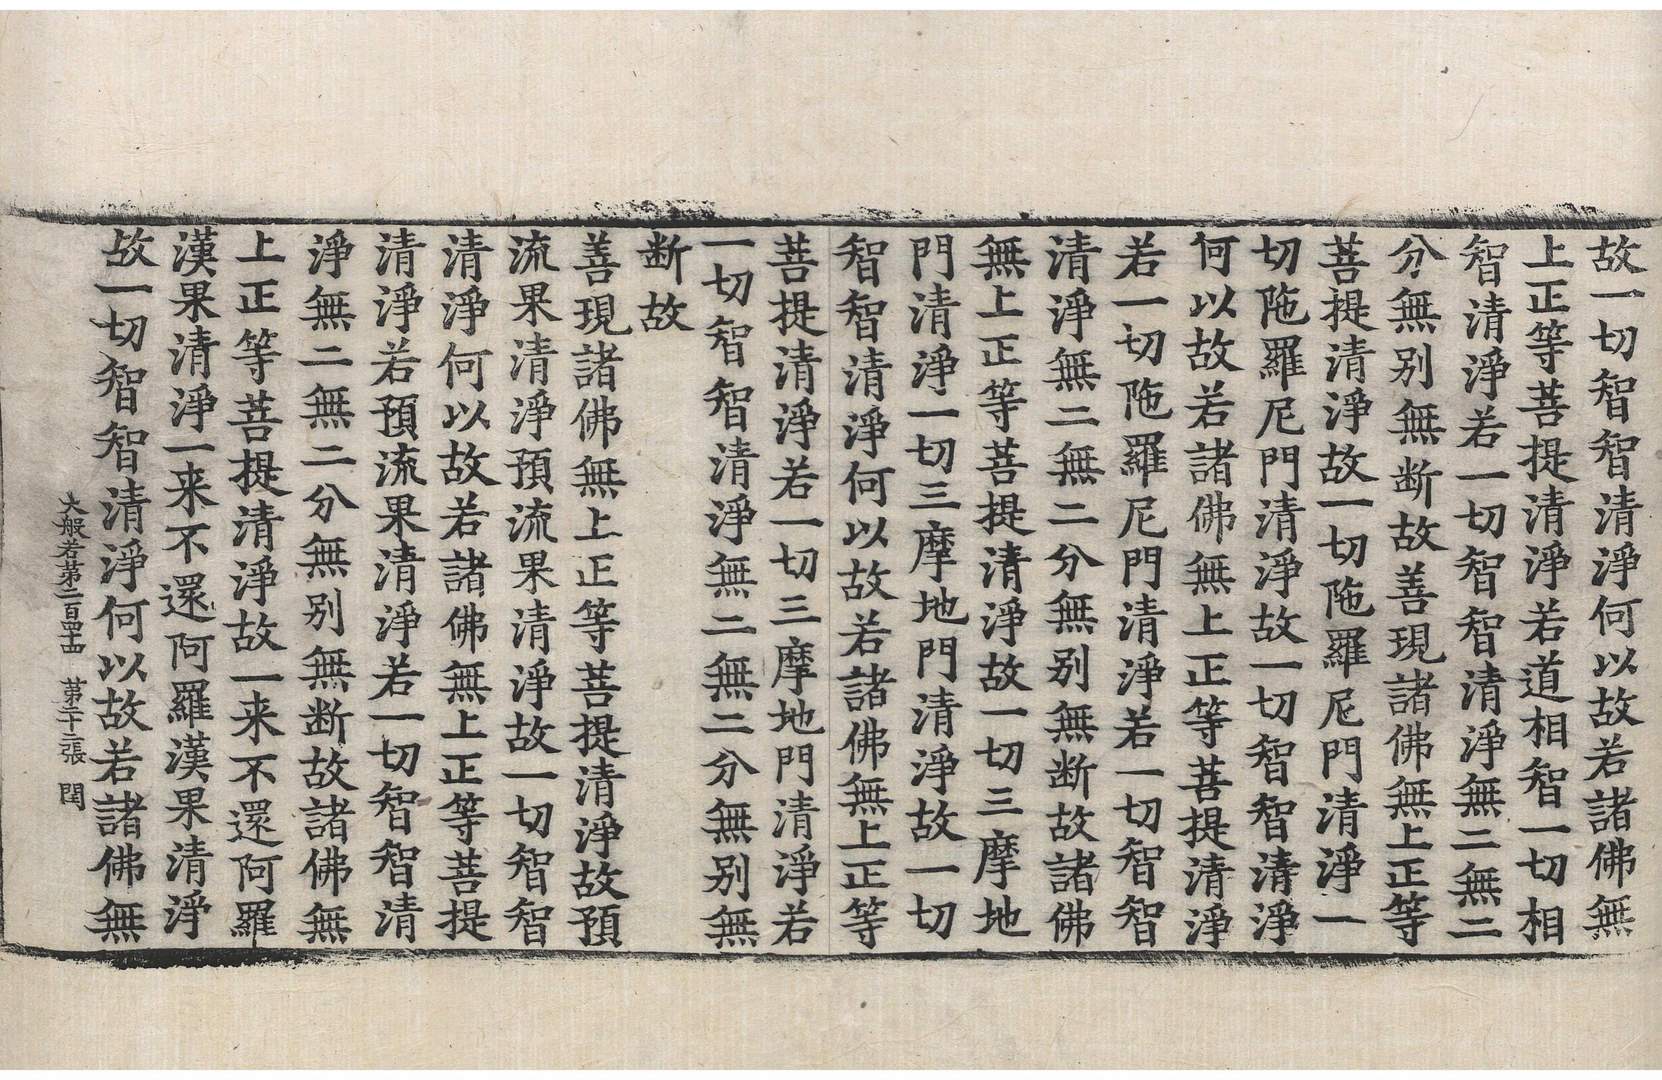 故一切智智清淨何以故若諸佛無
上正等菩提清淨若道相智一切相
智清淨若一切智智清淨無二無二
分無别無断故善現諸佛無上正等
菩提清淨故一切陁羅尼門清淨一
切陁羅尼門清淨故一切智智清淨
何以故若諸佛無上正等菩提清淨
若一切陁羅尼門清淨若一切智智
清淨無二無二分無别無断故諸佛
無上正等菩提清淨故一切三摩地
門清淨一切三摩地門清淨故一切
智智清淨何以故若諸佛無上正等
菩提清淨若一切三摩地門清淨若
一切智智清淨無二無二分無别無
断故
善現諸佛無上正等菩提清淨故預
流果清淨預流果清淨故一切智智
清淨何以故若諸佛無上正等菩提
清淨若預流果清淨若一切智智清
淨無二無二分無别無断故諸佛無
上正等菩提清淨故一来不還阿羅
漢果清淨一来不還阿羅漢果清淨
故一切智智清淨何以故若諸佛無
大般若第二百四十五 第二十二張 閏